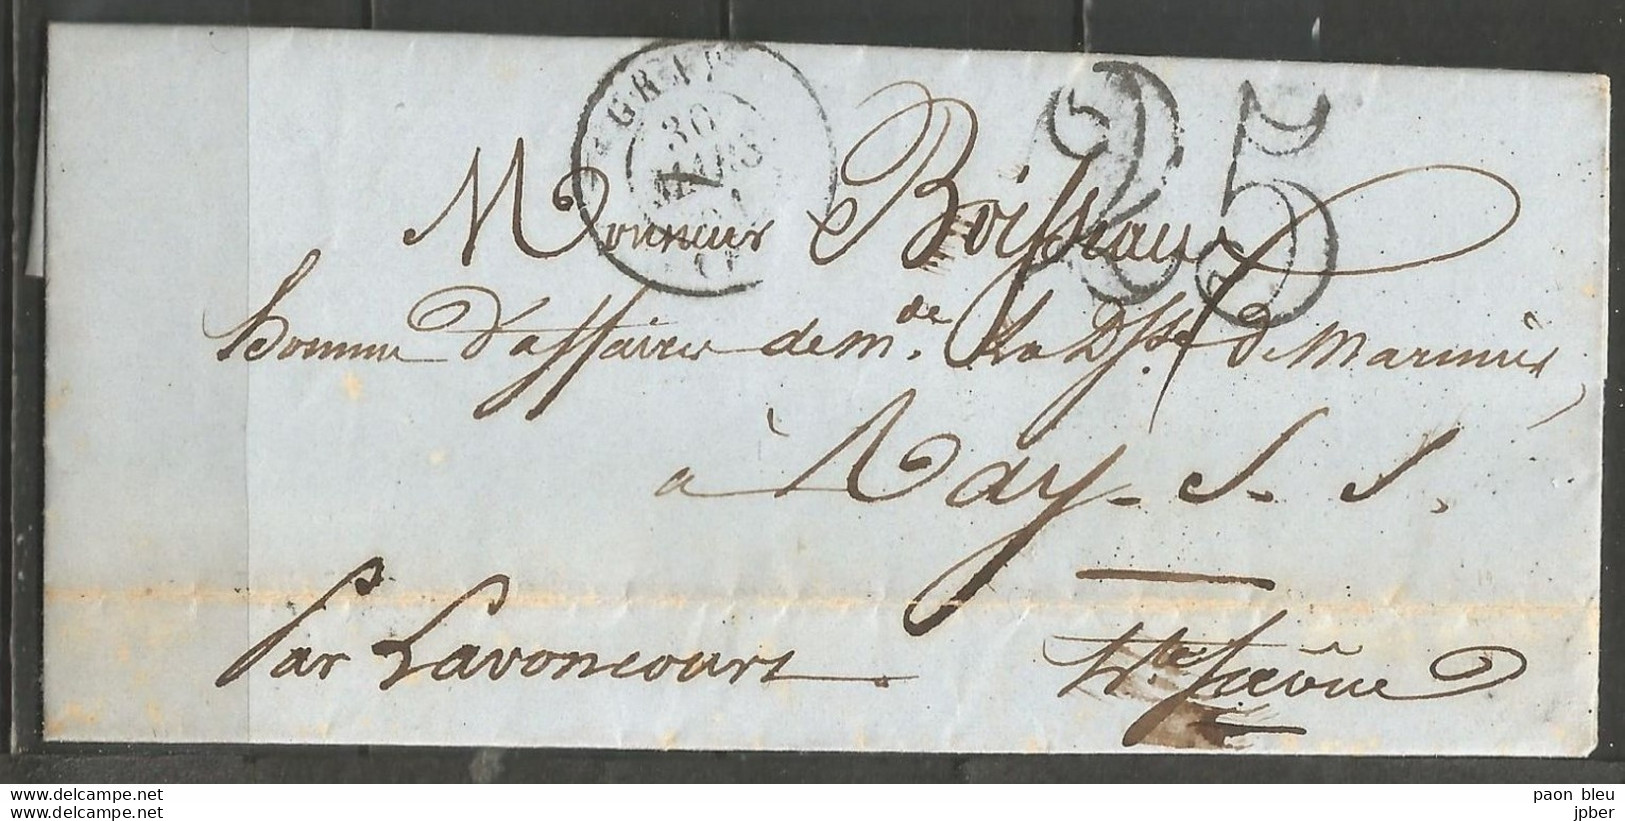 GRAY
30
MARS
25
Monsieur Boisseau
homme d'affaires de m.de La Dsse De Marmier
à Ray-S-S.
Par Lavoncourt. hte Saône
www.delcampe.net
paon bleu
jpber